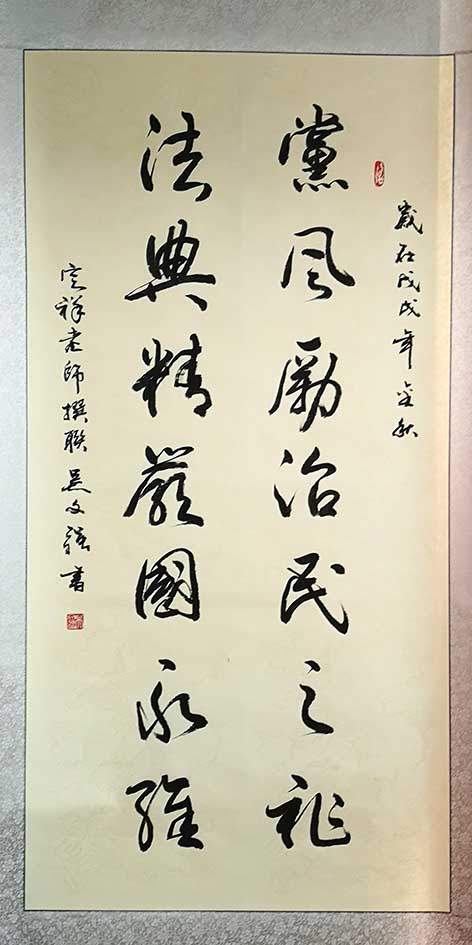 歲在戊戌年金秋
黨風勵治民之祉
法典精嚴國永維
宪祥老師撰聯 吴文强書